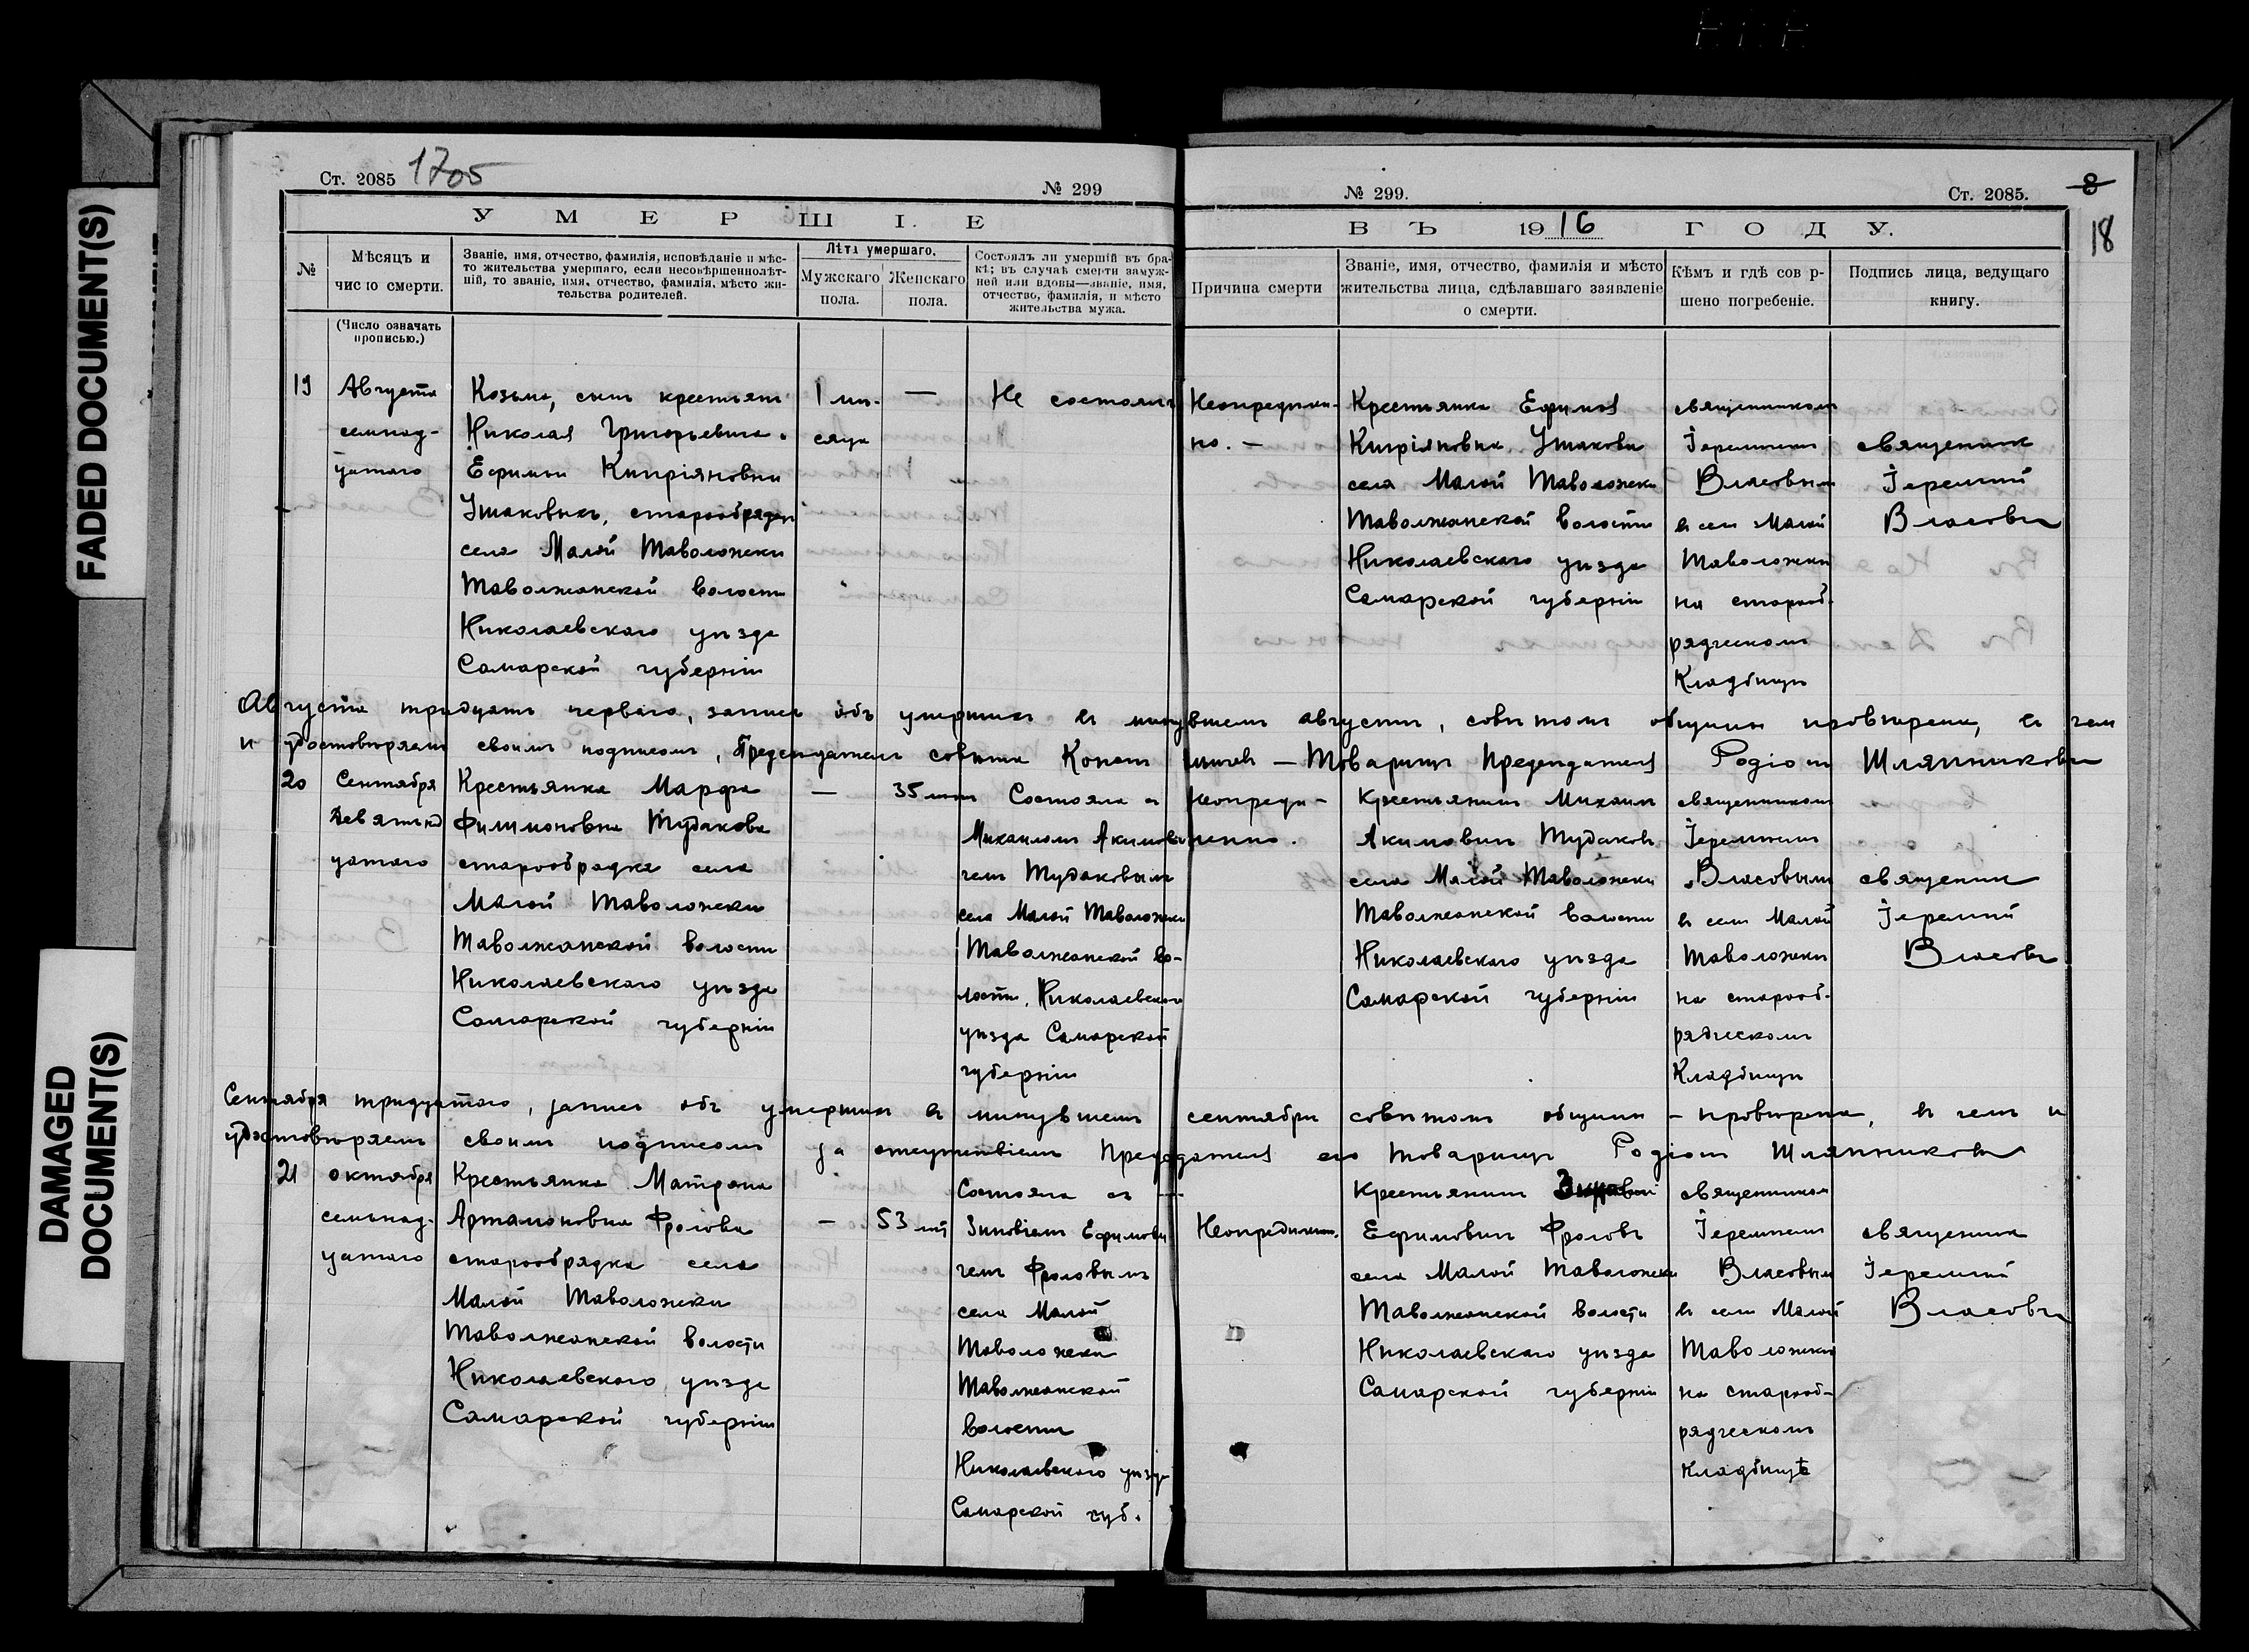 FADED DOCUMENT(S)
DAMAGED
DOCUMENT(S)
Ст. 2085 1705
№ 299
У М Е Р Ш І Е
№
Мѣсяцъ и
число смерти.
(Число означать
прописью.)
Званіе, имя, отчество, фамилія, исповѣданіе и мѣс-
то жительства умершаго, если несовѣршеннолѣт-
ній, то званіе, имя, отчество, фамилія, мѣсто жи-
тельства родителей.
Лѣта умершаго.
Мужскаго
пола.
Женскаго
пола.
Состоялъ ли умершій въ бра-
кѣ; въ случаѣ смерти замуж-
ней или вдовы—званіе, имя,
отчество, фамилія, и мѣсто
жительства мужа.
№ 299.
Ст. 2085.
8
18
ВЪ 1916 ГОДУ.
Причина смерти
Званіе, имя, отчество, фамилія и мѣсто
жительства лица, сдѣлавшаго заявленіе
о смерти.
Кѣмъ и гдѣ сов р-
шено погребеніе.
Подпись лица, ведущаго
книгу.
19
Августа
семнад-
цатаго
Козьма, сынъ крестьянъ
Николая Григорьевича
Ефиміи Кипріяновны
Ушаковыхъ, старообрядцы
села Малой Таволожки
Таволжанской волости
Николаевскаго уѣзда
Самарской губерніи
1 мѣ-
сяца
—
Не состоялъ
Неопредѣлен-
но. —
Крестьянка Ефимія
Кипріяновна Ушакова
села Малой Таволожки
Таволжанской волости
Николаевскаго уѣзда
Самарской губерніи
священникомъ
Іереміемъ
Власовымъ
въ селѣ Малой
Таволожкѣ
на старооб-
рядческомъ
Кладбищѣ
священникъ
Іеремій
Власовъ
Августа тридцать перваго, запись объ умершихъ въ минувшемъ августѣ, совѣтомъ общины провѣрена, въ чемъ
и удостовѣряемъ своимъ подписомъ, Председатель совѣта — Товарищъ Председателя Родіонъ Шляпниковъ
20
Сентября
девятнад
цатаго
Крестьянка Марфа
Филимоновна Тудакова
старообрядка села
Малой Таволожки
Таволжанской волости
Николаевскаго уѣзда
Самарской губерніи
—
35 лѣтъ
Состояла съ
Михаиломъ Акимови
чемъ Тудаковымъ
села Малой Таволожки
Таволжанской во-
лости, Николаевскаго
уѣзда Самарской
губерніи
Неопредѣ-
ленно.
Крестьянинъ Михаилъ
Акимовичъ Тудаковъ
села Малой Таволожки
Таволжанской волости
Николаевскаго уѣзда
Самарской губерніи
священникомъ
Іереміемъ
Власовымъ
въ селѣ Малой
Таволожкѣ
на старооб-
рядческомъ
Кладбищѣ
священникъ
Іеремій
Власовъ
Сентября тридцатаго, запись объ умершихъ въ минувшемъ сентябрѣ совѣтомъ общины — провѣрена, въ чемъ и
удостовѣряемъ своимъ подписомъ за отсутствіемъ Председателя его Товарищъ Родіонъ Шляпниковъ
21
октября
семьнад-
цатаго
Крестьянка Матрона
Артамоновна Фролова
старообрядка села
Малой Таволожки
Таволжанской волости
Николаевскаго уѣзда
Самарской губерніи
—
53 лѣт
Состояла съ —
Зиновіемъ Ефимови
чемъ Фроловымъ
села Малой
Таволожки
Таволжанской
волости
Николаевскаго уѣзда
Самарской губ.
Неопредѣленно.
Крестьянинъ Зиновій
Ефимовичъ Фроловъ
села Малой Таволожки
Таволжанской волости
Николаевскаго уѣзда
Самарской губерніи
священникомъ
Іереміемъ
Власовымъ
въ селѣ Малой
Таволожкѣ
на старооб-
рядческомъ
кладбищѣ
священникъ
Іеремій
Власовъ